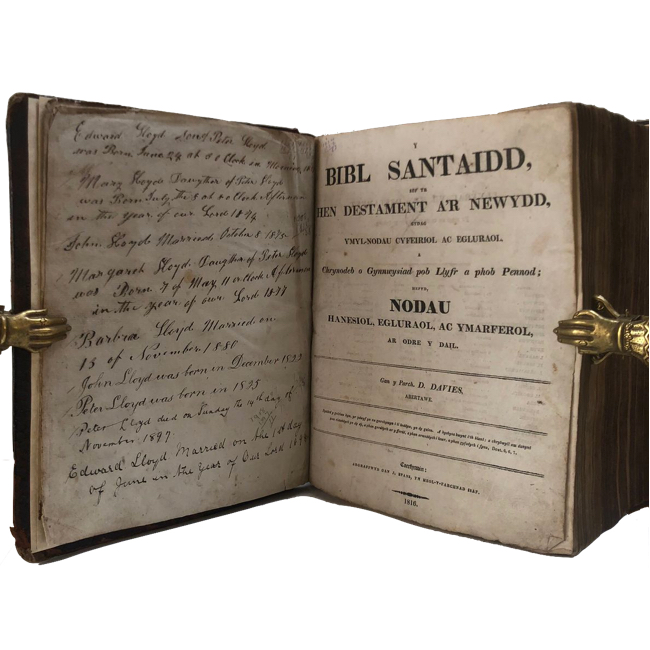 Edward Lloyd Son of Peter Lloyd
was Born June 24 at 5 o Clock in Morning
Mary Lloyd Daughter of Peter Lloyd
was Born July the at o Clock Afternoon
in the year of our Lord 1874
John Lloyd Married October 8 1875
Margaret Lloyd Daughter of Peter Lloyd
was Born 7 of May 11 o Clock Afternoon
in the year of our Lord 1877
Barbra Lloyd Married on
15 of November 1880
John Lloyd was born in December 1833
Peter Lloyd was born in 1835
Peter Lloyd died on Sunday the 14th day of
November 1897
Edward Lloyd Married on the 1st day
of June in the Year of Our Lord
Y
BIBL SANTAIDD,
SEF YR
HEN DESTAMENT A'R NEWYDD,
GYDAG
YMYL-NODAU CYFEIRIOL AC EGLURAOL.
A
Chrynodeb o Gynnwysiad pob Llyfr a phob Pennod;
HEFYD,
NODAU
HANESIOL, EGLURAOL, AC YMARFEROL,
AR ODRE Y DAIL.
Gan y Parch. D. DAVIES,
ABERTAWE.
Caerfyrddin:
ARGRAFFWYD GAN J. EVANS, YN HEOL-Y-FARCHNAD ISAF.
1816.